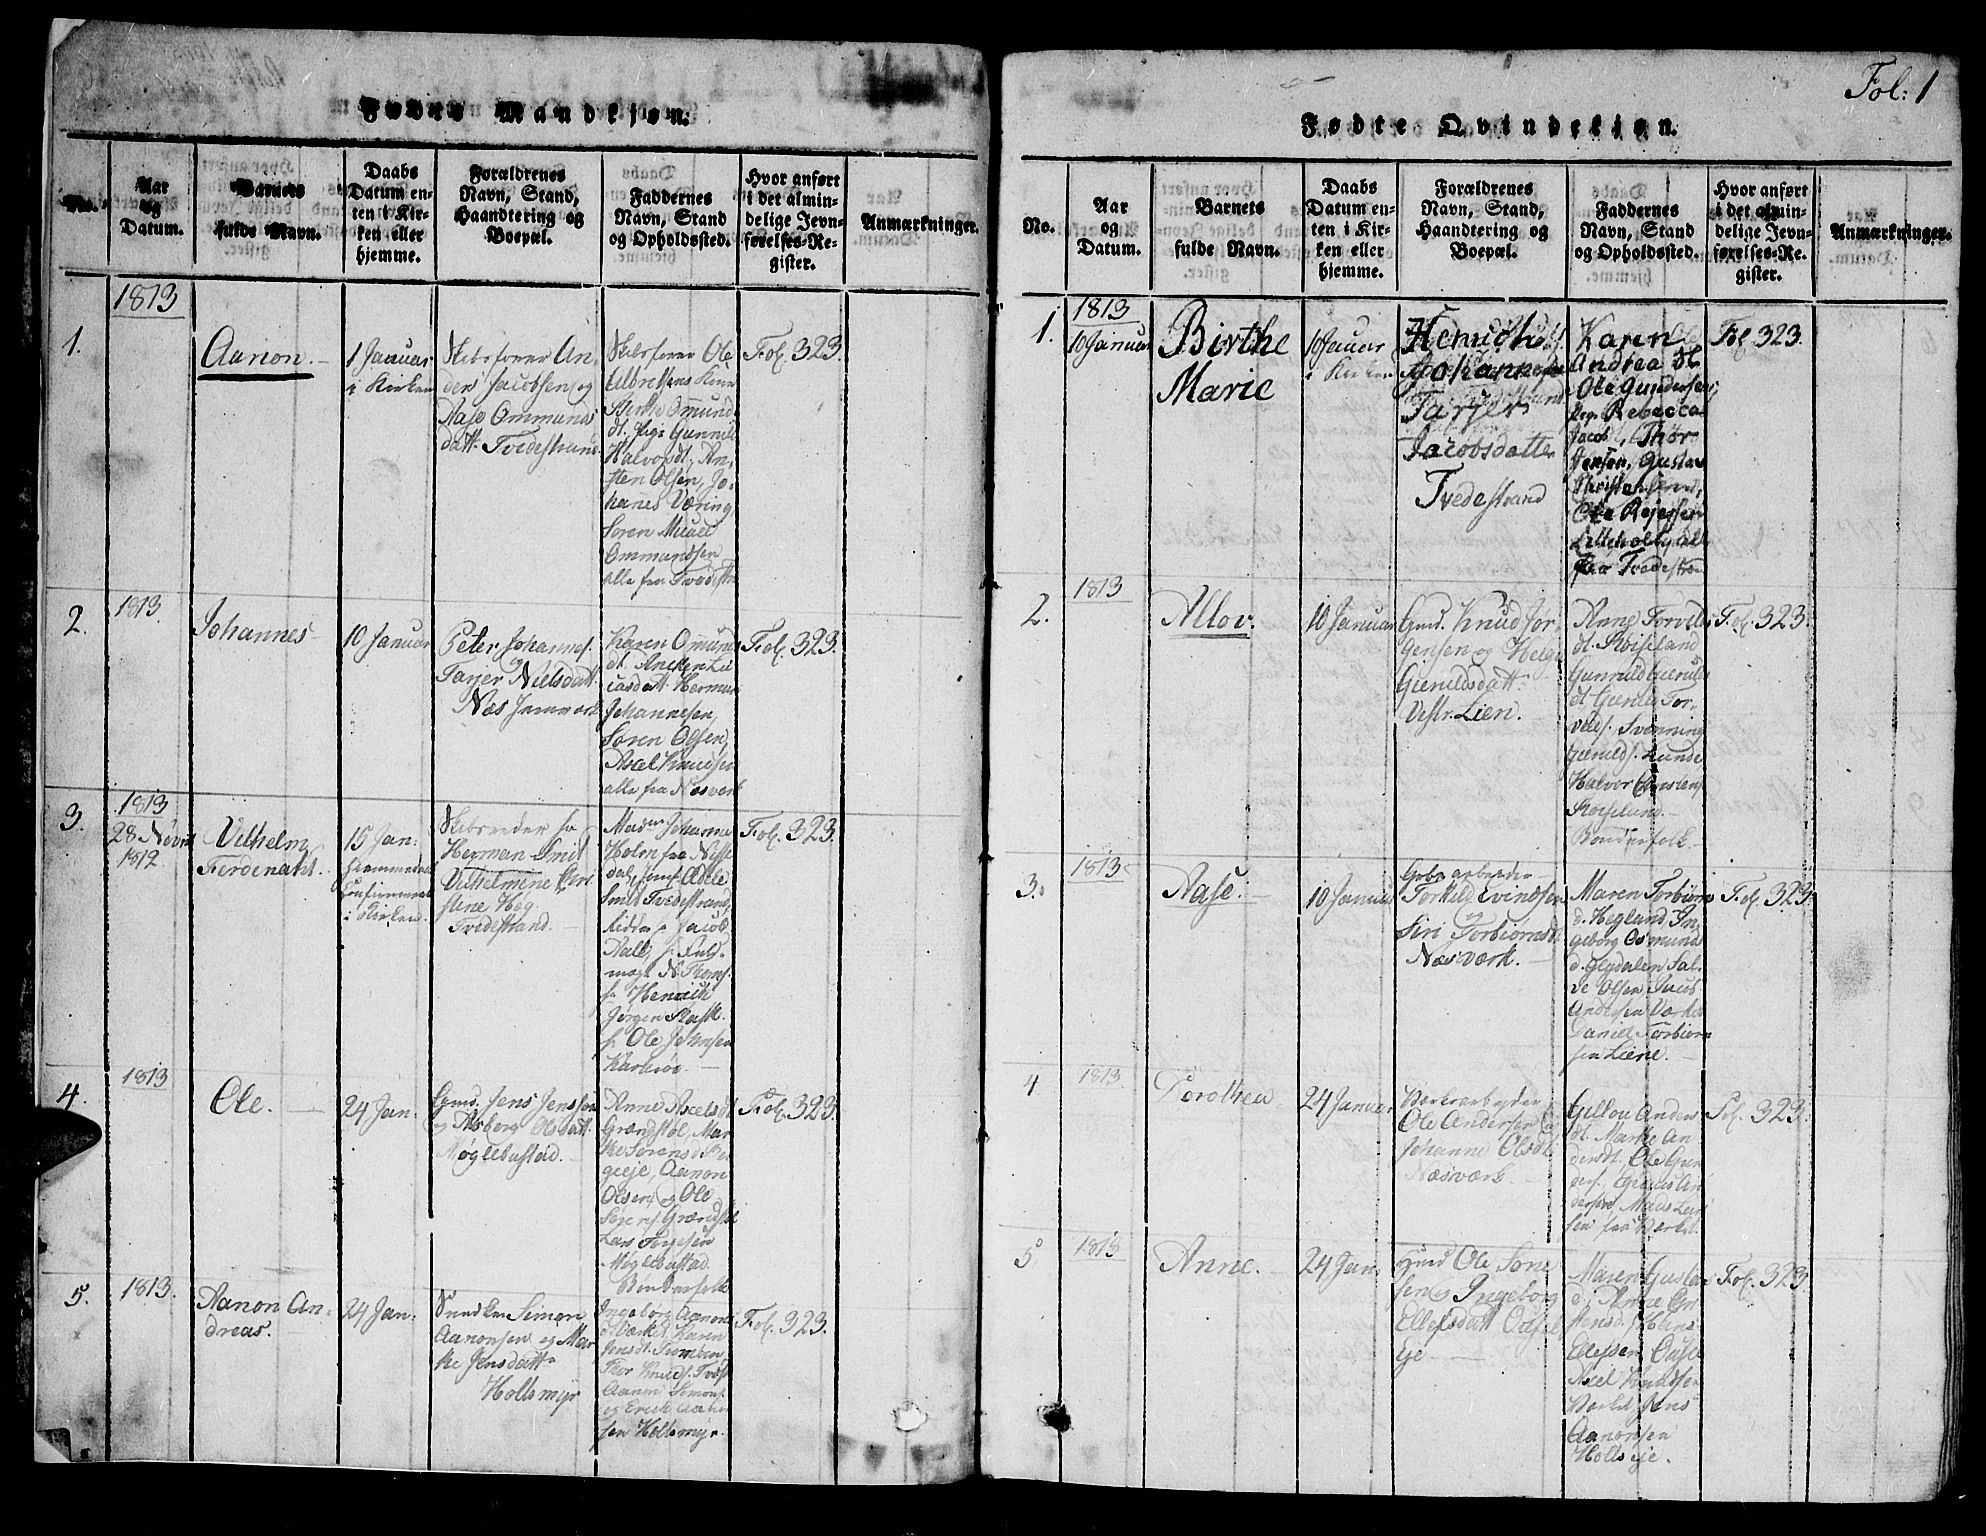 Fødte Mandkjøn.
No.
Aar
og
Datum.
Barnets
fulde Navn.
Daabs
Datum en-
ten i Kir-
ken eller
hjemme.
Forældrenes
Navn, Stand,
Haandtering og
Boepæl.
Faddernes
Navn, Stand
og Opholdssted.
Hvor anført
i det almin-
delige Jevn-
førelses-Re-
gister.
Anmærkninger.
1.
1813
Aanon.
1 Januar
i Kirken
Skibsfører An-
ders Jacobsen og
Aase Ommunds
datt. Tvedestrand
Skibsfører Ole
Ulbretsens Kone
Berthe Ommund
dt. Pige Gunnild
Halvorsdt, An-
sten Olsen, Jo-
hanes Væring
Søren Micael
Ommundsen
alle fra Tvedestr
Fol. 323.
2.
1813.
Johannes
10 Januar
Peter Johannes.
og
Tarjer Nielsdatt
Næs Jernværk
Karen Ommunds
dt.
Johannesen,
Søren Olsen,
Axel Knudsen
alle fra Næsverk
Fol. 323.
3.
1813
28 Novbr
1812
Vilhelm
Ferdenant.
15 Jan:
hjemmedøbt
Confirmeret
i Kirken.
Skibsreder hr
Herman Smit
Vilhelmine Chri
stine Høg
Tvedestrand
Madm Johanne
Holm fra Nisse
dal, Jomf. Adele
Smit Tvedestrand,
Ridder hr Jacob
Aall, hr Fuld-
mægt. N. Thoms.
hr Henrik
Jørgen
hr Ole Johnsen
Fol. 323.
4.
1813
Ole.
24 Jan.
Gmd. Jens Jensen
og Asborg Olsdatt.
Møglebustad.
Anne Axelsdt
Grændstøl, Mar-
the Sørensd.
Aanon
Olsen, og Ole
Sørens. Grændstøl
Lars Torjesen
Møglebustad.
Bønderfolk
Fol. 323.
5.
1813.
Aanon An-
dreas.
24 Jan.
Snedker Simon
Aanonsen og Mar-
the Jensdatt
Holtsmyr
Ingeborg Aanons
d. Værket Karen
Jensdt.
Thor Knuds. Tvedst
Aanon Simons.
og Erich Aanon
sen Holtsmyr.
Fol. 323.
Fol: 1
Fødte Qvindekjøn.
No.
Aar
og
Datum.
Barnets
fulde Navn.
Daabs
Datum en-
ten i Kir-
ken eller
hjemme.
Forældrenes
Navn, Stand,
Haandtering og
Boepæl.
Faddernes
Navn, Stand
og Opholdssted.
Hvor anført
i det almin-
delige Jevn-
førelses-Re-
gister.
Anmærkninger.
1.
1813
10 Januar
Birthe
Marie
10 Januar
i Kirken
Johannesen
Tarjer
Jacobsdatter
Tvedestrand
Karen
Andrea
Ole Gundersen,
Pige Rebecca
Jacob., Thor
Jensen, Gustav
Christensen,
Ole Rejersen
Lilleholt, alle
fra Tvedestran
Fol 323.
2.
1813
Allov.
10 Januar
Gmd. Knud Jør-
gensen og Helge
Gieruldsdatt
Vestr. Lien.
Anne Torvilds
dt. Røiseland
Gunnild Gieruld
dt Gieruld Tor-
velds. Svenning
Gierulds. Lunde
Halvor Christens.
Røiselund.
Bønderfolk
Fol. 323.
3.
1813
Aase.
10 Januar
Grbearbeider
Torkild Evindsen
og
Siri Torbiørnsd.
Næsværk.
Maren Torbiørns
d. Hegland, In-
geborg Osmund
d. Glydalen Sal-
ve Olsen Jacob
Andersen Værket
Daniel Torbiørn
sen Liene.
Fol. 323.
4
1813
Dorothea
24 Januar
Værksarbejder
Ole Andersen og
Johanne Olsdt.
Næsværk
Gillou Anders
dt. Marthe An
dersdt. Ole Gun
ders., Gieruld An
dersen, Mads Lar
sen fra Værket.
Fol. 323.
5
1813
Anne.
24 Jan.
Huusmd Ole Søren
sen og Ingeborg
Ellefsdatt Oasel
eje
Maren Gustav
d. Anne
Hans
Ellefsen Oasle
Axel Knudsen
Værket Jens
Aanonsen
Holtseje.
Fol. 323